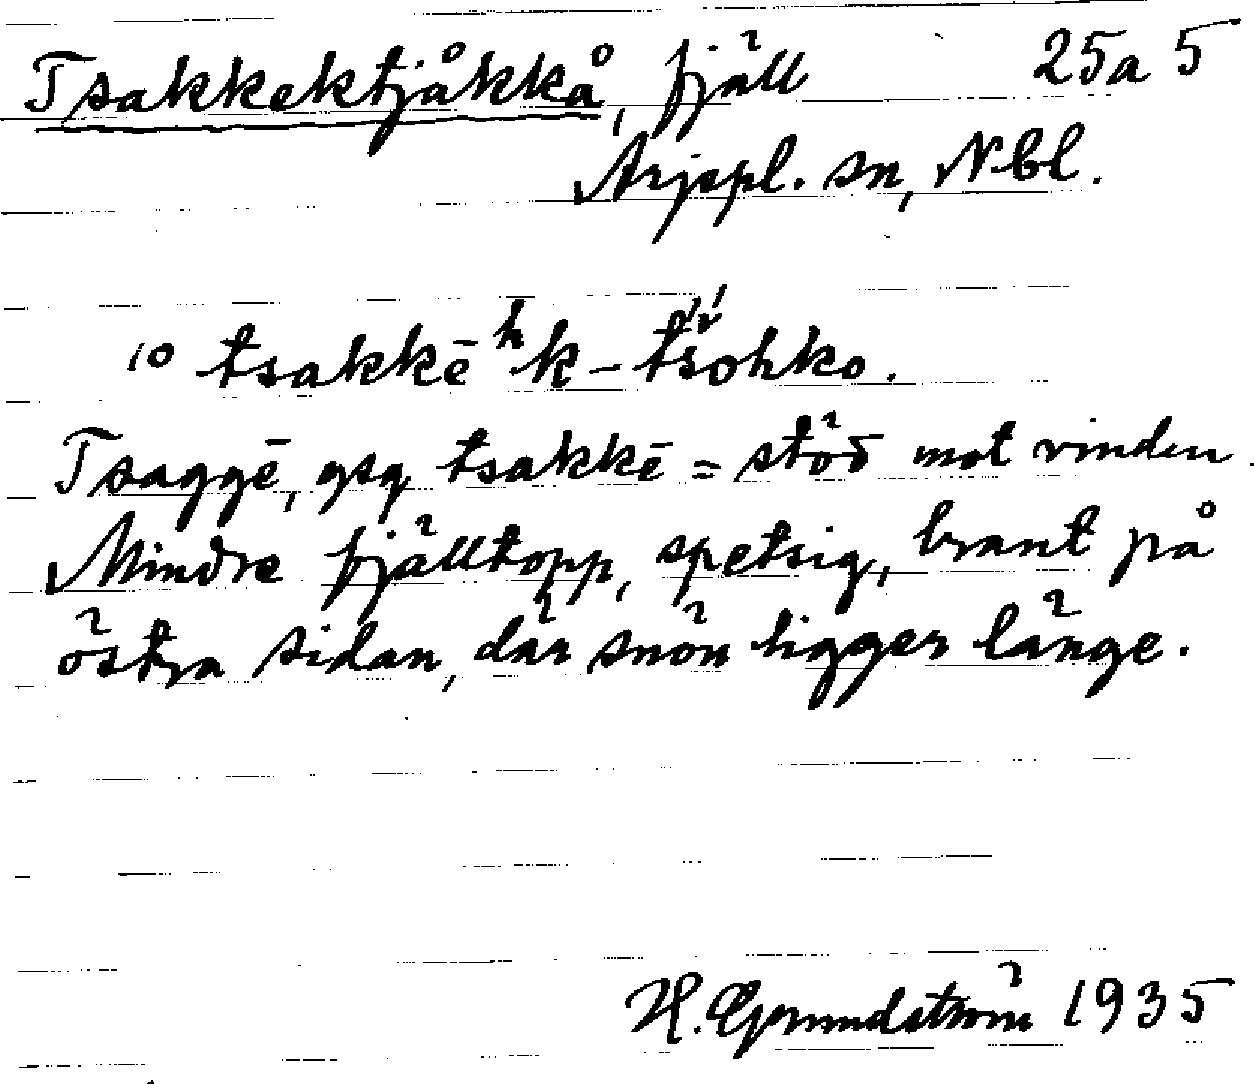 Tsakkektjåkkå, fjäll 25a 5
Arjepl. sn, Nbl.
10 tsakkē ʰk-tšohko.
Tsaggē, gsg tsakkē = stöd mot vinden.
Mindre fjälltopp, spetsig, brant på
östra sidan, där snön ligger länge.
H. Grundström 1935